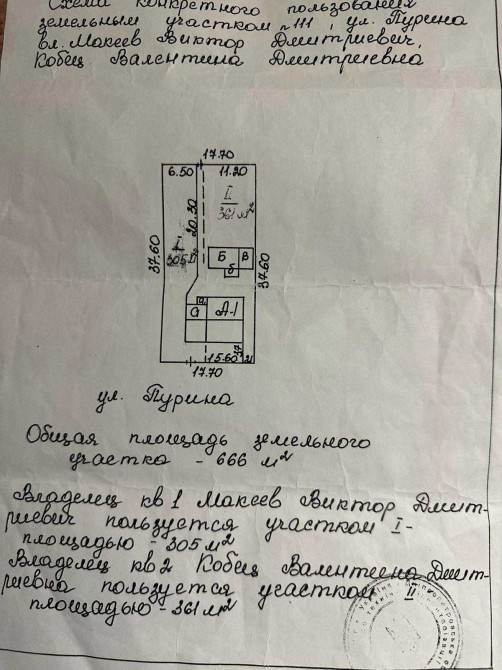 Схема конкретного пользования
земельным участком №111, ул. Пурина
вл. Макеев Виктор Дмитриевич,
Кобец Валентина Дмитриевна
17.70
6.50 11.20
I
305
II
361 м²
20.30
37.60
37.60
Б В
б
а
а А-1
15.60
17.70
ул. Пурина
Общая площадь земельного
участка - 666 м²
Владелец кв 1 Макеев Виктор Дмит-
риевич пользуется участком I-
площадью - 305 м²
Владелец кв 2 Кобец Валентина Дмит-
риевна пользуется участком II
площадью - 361 м²